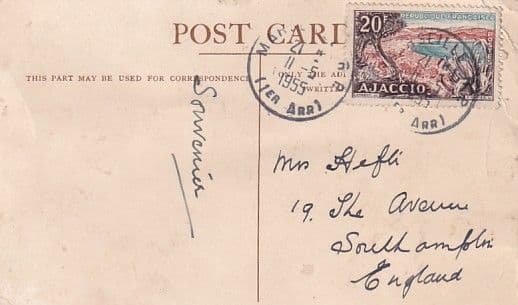 POST CARD
THIS PART MAY BE USED FOR CORRESPONDENCE
ONLY THE
20F
REPUBLIQUE FRANÇAISE
AJACCIO
21
11
1955
(1ER ARRT)
Souvenir
Mrs Hefti
19, The Avenue
Southampton
England